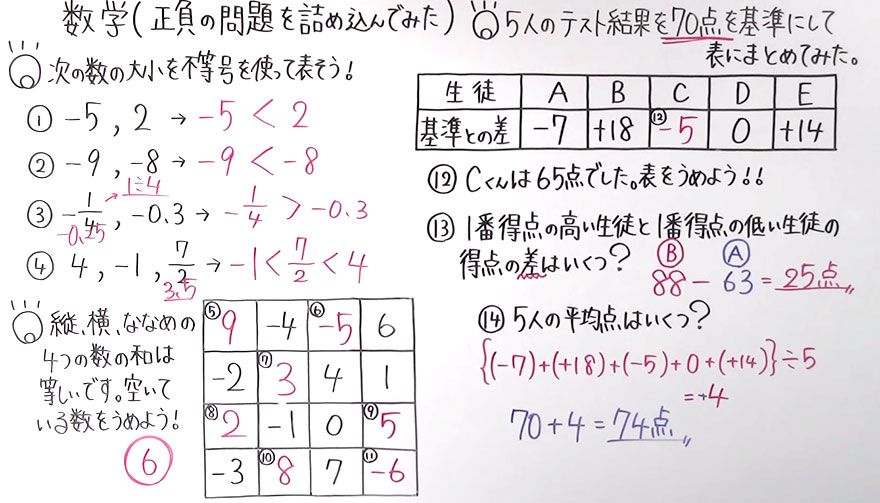 数学(正負の問題を詰め込んでみた)
次の数の大小を不等号を使って表そう!
① -5, 2 → -5 < 2
② -9, -8 → -9 < -8
1÷4
③ -1/4, -0.3 → -1/4 > -0.3
-0.25
④ 4, -1, 7/2 → -1 < 7/2 < 4
3.5
縦、横、ななめの
4つの数の和は
等しいです。空いて
いる数をうめよう!
6
⑤ 9 -4 ⑥ -5 6
-2 ⑦ 3 4 1
⑧ 2 -1 0 ⑨ 5
-3 ⑩ 8 7 ⑪ -6
5人のテスト結果を70点を基準にして
表にまとめてみた。
生徒 A B C D E
基準との差 -7 +18 ⑫ -5 0 +14
⑫ Cくんは65点でした。表をうめよう!!
⑬ 1番得点の高い生徒と1番得点の低い生徒の
得点の差はいくつ?
B A
88 - 63 = 25点
⑭ 5人の平均点はいくつ?
{(-7)+(+18)+(-5)+0+(+14)}÷5
=+4
70+4=74点